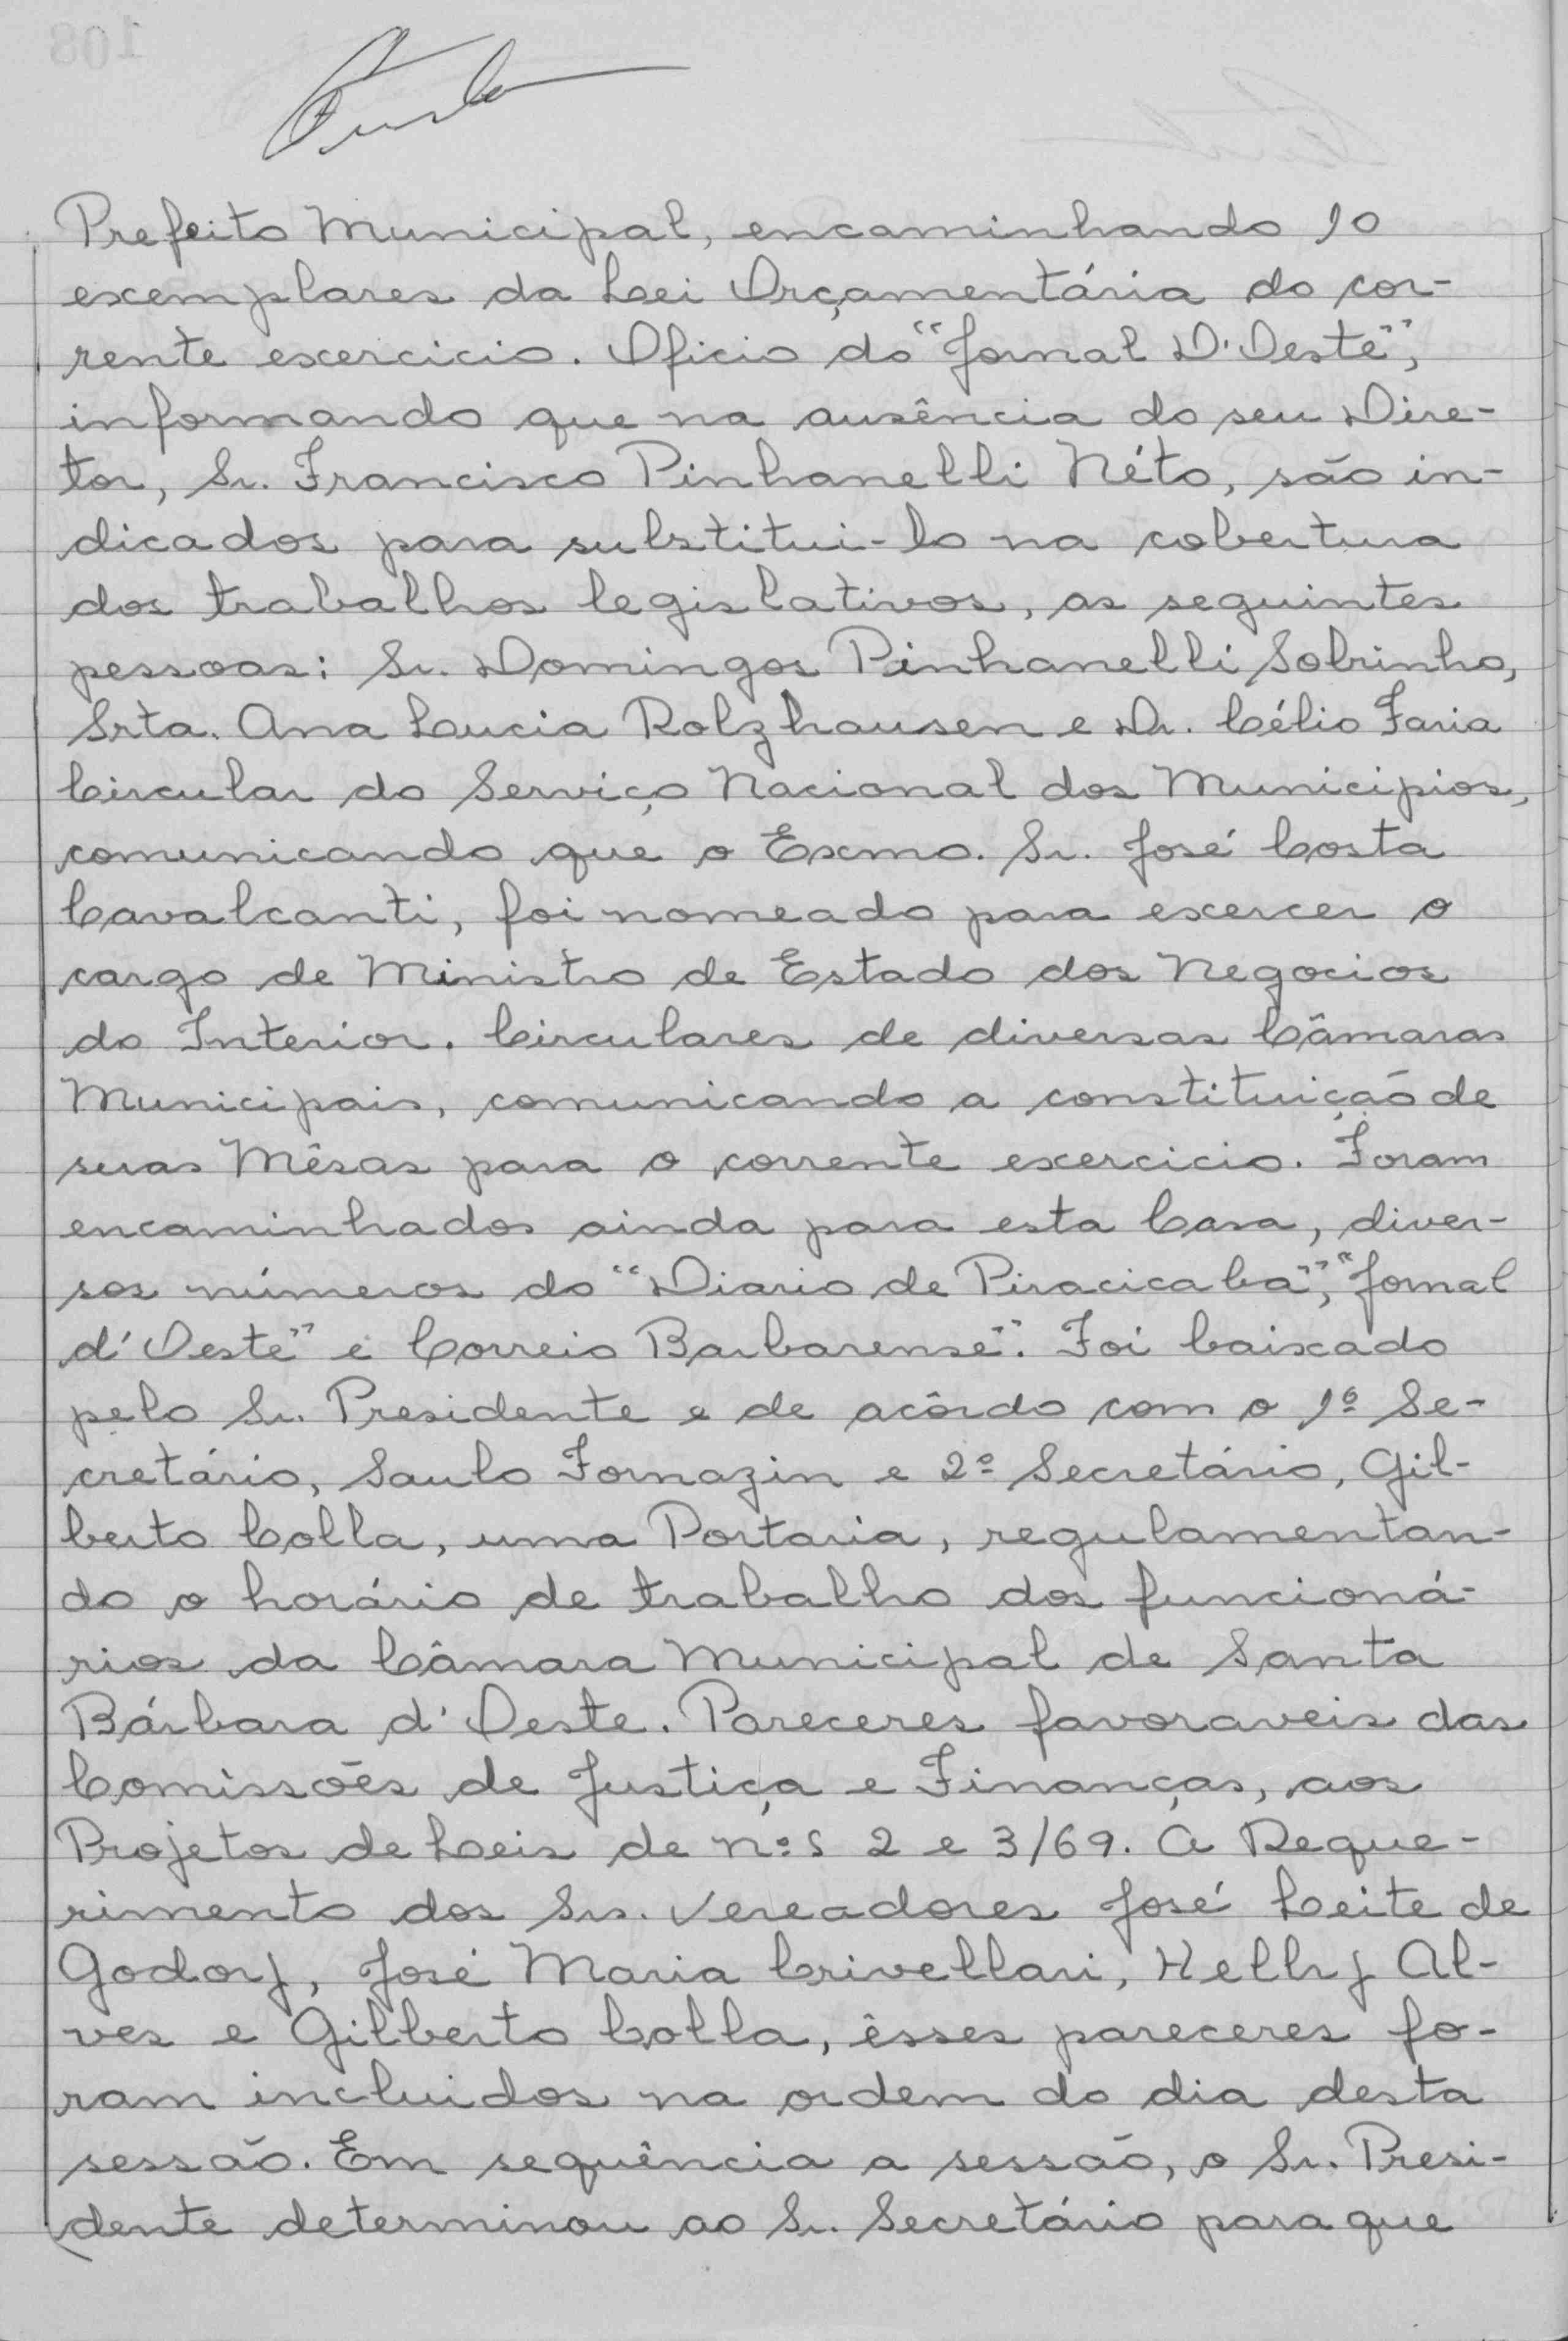 Prefeito Municipal, encaminhando 10
exemplares da Lei Orçamentária do cor-
rente exercicio. Oficio do "Jornal D'Oeste",
informando que na ausência do seu Dire-
tor, Sr. Francisco Pinhanelli Néto, são in-
dicados para substitui-lo na cobertura
dos trabalhos legislativos, as seguintes
pessoas: Sr. Domingos Pinhanelli Sobrinho,
Srta. Ana Lucia Rolzhausen e Dr. Célio Faria
Circular do Serviço Nacional dos Municipios,
comunicando que o Exmo. Sr. José Costa
Cavalcanti, foi nomeado para exercer o
cargo de Ministro de Estado dos Negocios
do Interior. Circulares de diversas Câmaras
Municipais, comunicando a constituição de
suas Mêsas para o corrente exercicio. Foram
encaminhados ainda para esta Casa, diver-
sos números do "Diario de Piracicaba", "Jornal
d'Oeste" e Correio Barbarense". Foi baixado
pelo Sr. Presidente e de acôrdo com o 1º Se-
cretário, Saulo Fornazin e 2º Secretário, Gil-
berto Colla, uma Portaria, regulamentan-
do o horário de trabalho dos funcioná-
rios da Câmara Municipal de Santa
Bárbara d'Oeste. Pareceres favoraveis das
Comissões de Justiça e Finanças, aos
Projetos de Leis de nºs 2 e 3/69. A Reque-
rimento dos Srs. Vereadores José Leite de
Godoy, José Maria Crivellari, Kelly Al-
ves e Gilberto Colla, êsses pareceres fo-
ram incluidos na ordem do dia desta
sessão. Em sequência a sessão, o Sr. Presi-
dente determinou ao Sr. Secretário para que